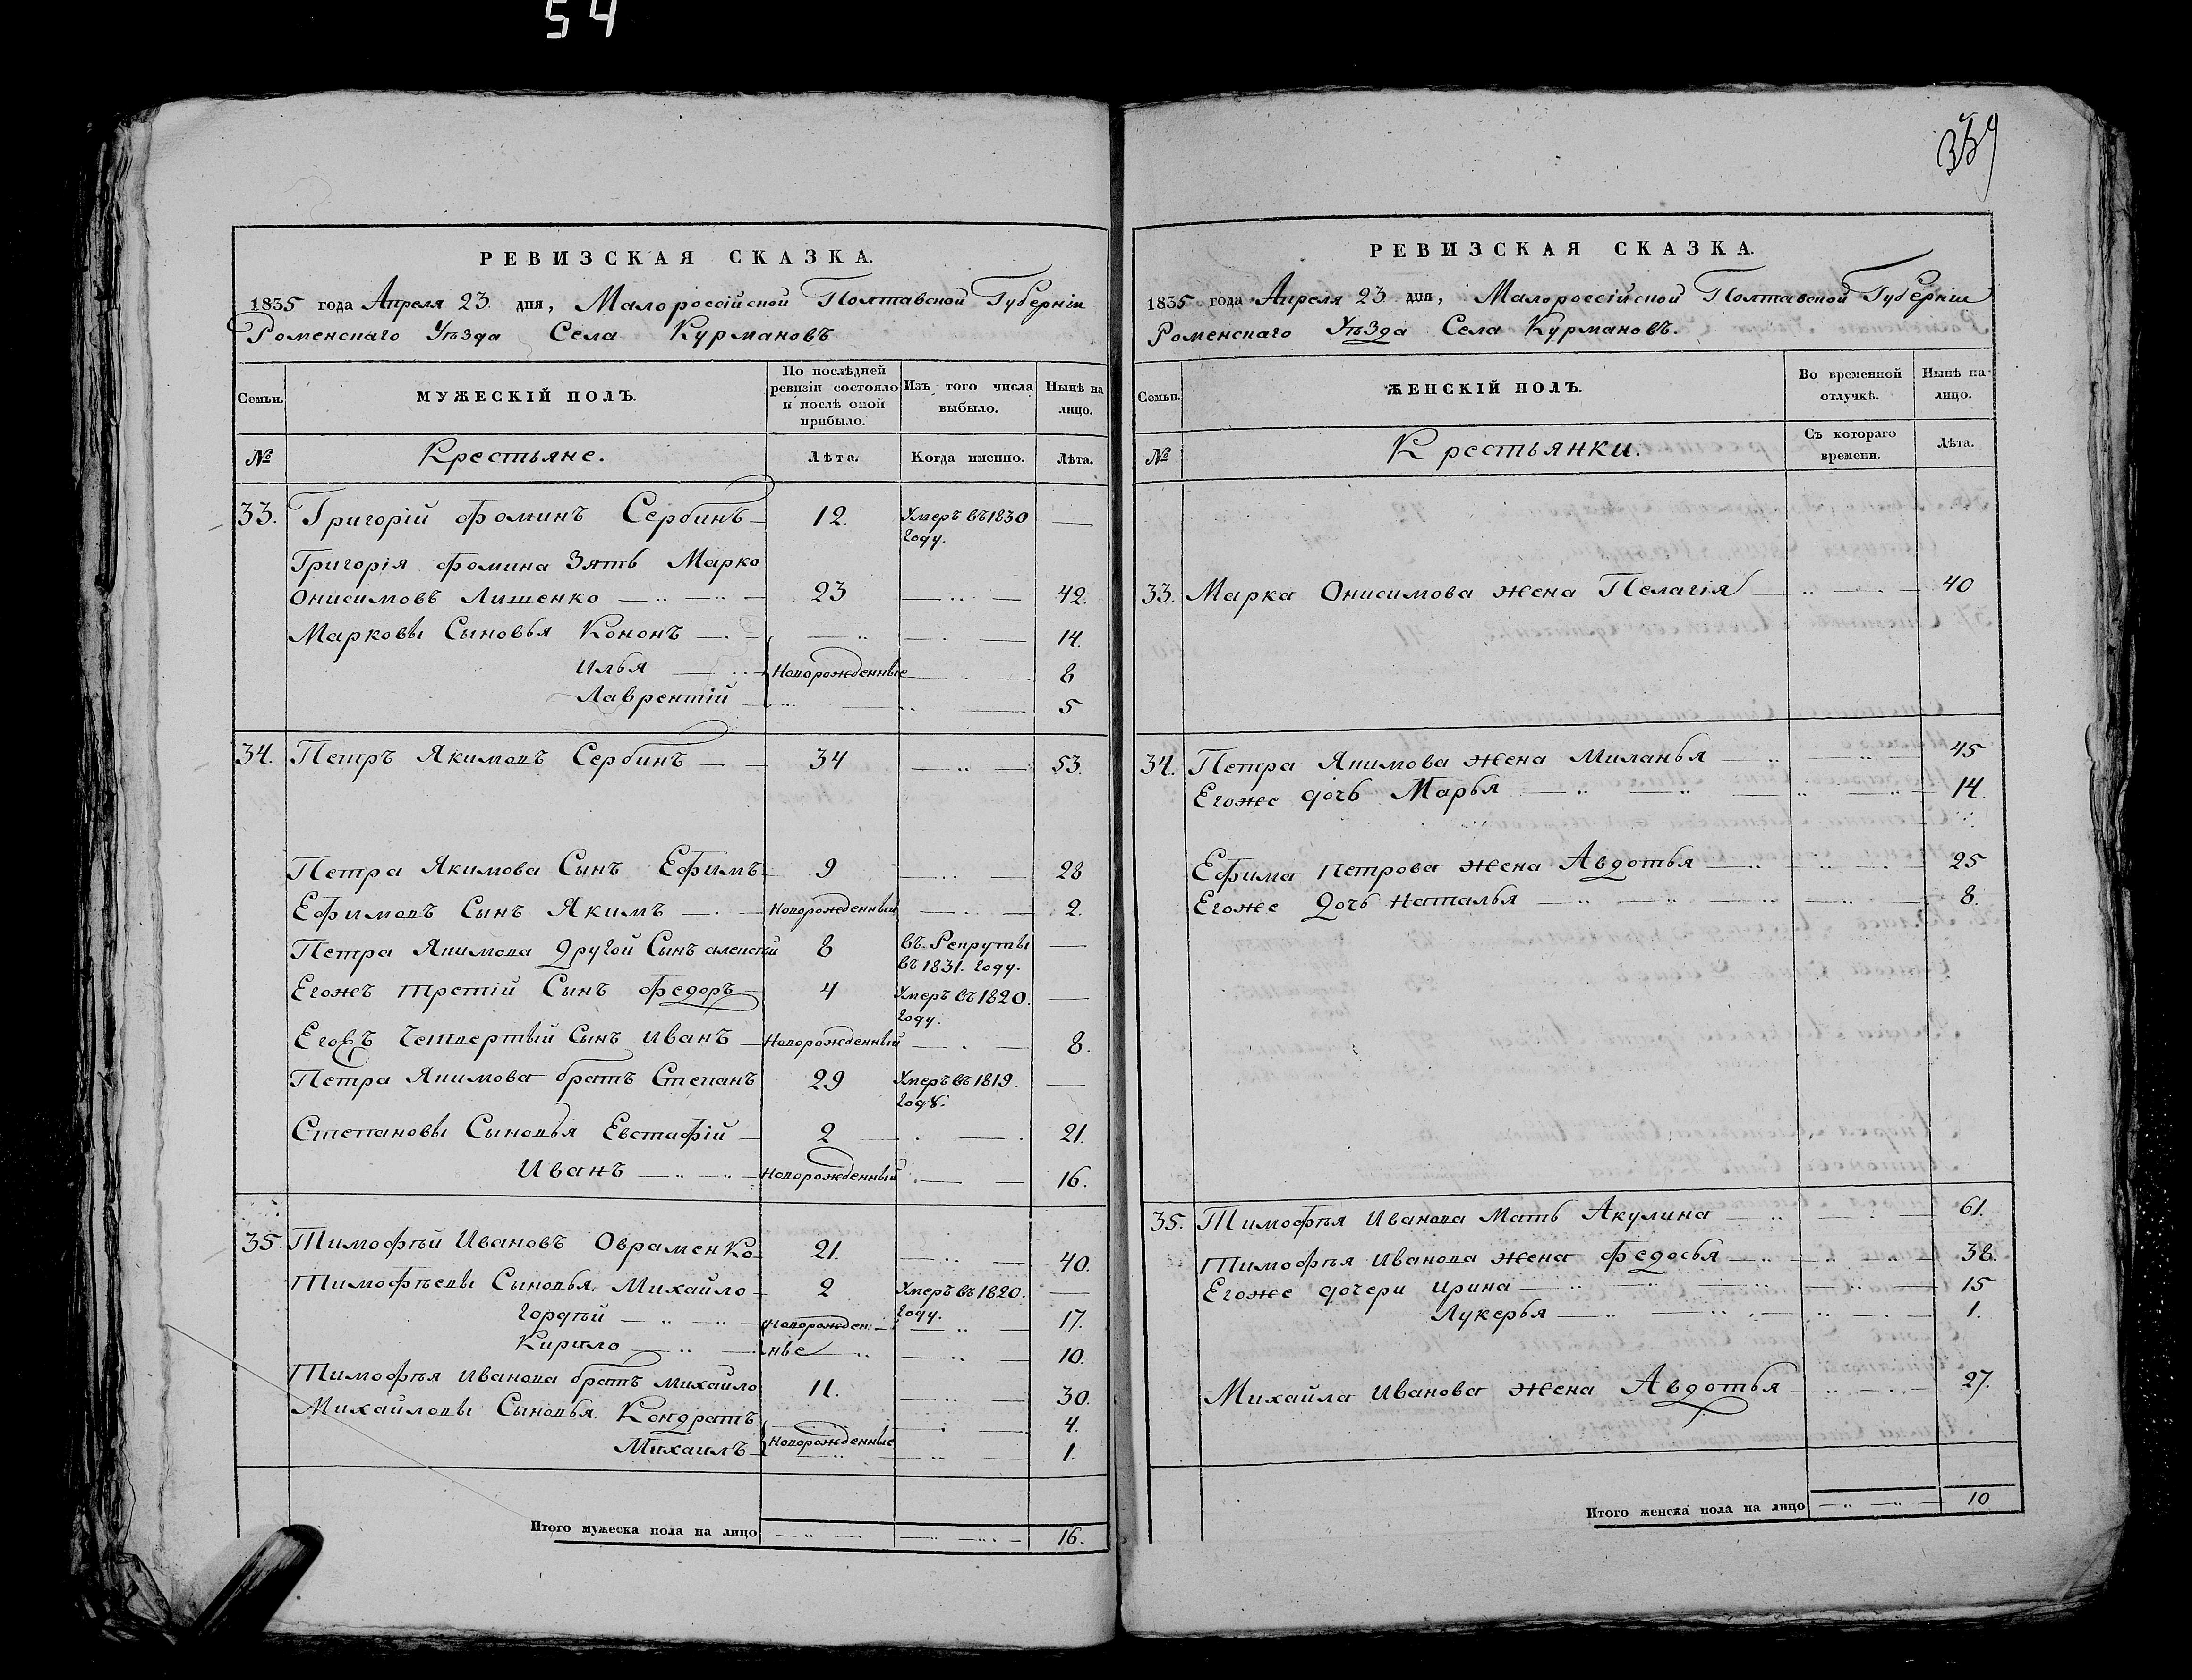 54
РЕВИЗСКАЯ СКАЗКА.
1835 года Апреля 23 дня, Малороссійской Полтавской Губерніи
Роменскаго Уѣзда Села Курмановъ
Семьи.
МУЖЕСКІЙ ПОЛЪ.
По послѣдней
ревизіи состояло
и послѣ оной
прибыло.
Изъ того числа
выбыло.
Нынѣ на
лицо.
№
Крестьяне.
Лѣта.
Когда именно.
Лѣта.
33. Григорій Фоминъ Сербинъ 12. Умеръ въ 1830
году.
Григорія Фомина Зять Марко
Онисимовъ Лишенко 23 42.
Марковы Сыновья Кононъ 14.
Илья Новорожденные 8
Лаврентій 5
34. Петръ Якимовъ Сербинъ 34 53.
Петра Якимова Сынъ Ефимъ 9 28
Ефимовъ Сынъ Якимъ Новорожденный 2.
Петра Якимова другой Сынъ алексѣй 8 въ Рекруты
въ 1831. году.
Егожъ третій Сынъ Федоръ 4 Умеръ въ 1820.
году.
Егожъ Четвертый Сынъ Иванъ Новорожденный 8.
Петра Якимова братъ Степанъ 29 Умеръ въ 1819.
году.
Степановы Сыновья Евстафій 2 21.
Иванъ Новорожденный 16.
35. Тимофѣй Ивановъ Овраменко 21. 40.
Тимофѣевы Сыновья. Михайло 2 Умеръ въ 1820.
году.
Гордѣй Новорожден- 17.
Кирило ные 10.
Тимофѣя Иванова братъ Михайло 11. 30.
Михайловы Сыновья. Кондратъ 4.
Михаилъ Новорожденные 1.
Итого мужеска пола на лицо 16.
РЕВИЗСКАЯ СКАЗКА.
1835 года Апреля 23 дня, Малороссійской Полтавской Губерніи
Роменскаго Уѣзда Села Курмановъ.
Семьи.
ЖЕНСКІЙ ПОЛЪ.
Во временной
отлучкѣ.
Нынѣ на
лицо.
№
Крестьянки.
Съ котораго
времени.
Лѣта.
33. Марка Онисимова жена Пелагія 40
34. Петра Якимова жена Миланья 45
Егоже дочь Марья 14
Ефима Петрова жена Авдотья 25
Егоже Дочь Наталья 8.
35. Тимофѣя Иванова Мать Акулина 61.
Тимофѣя Иванова жена Федосья 38.
Егоже дочери Ирина 15
Лукерья 1.
Михайла Иванова жена Авдотья 27.
Итого женска пола на лицо 10